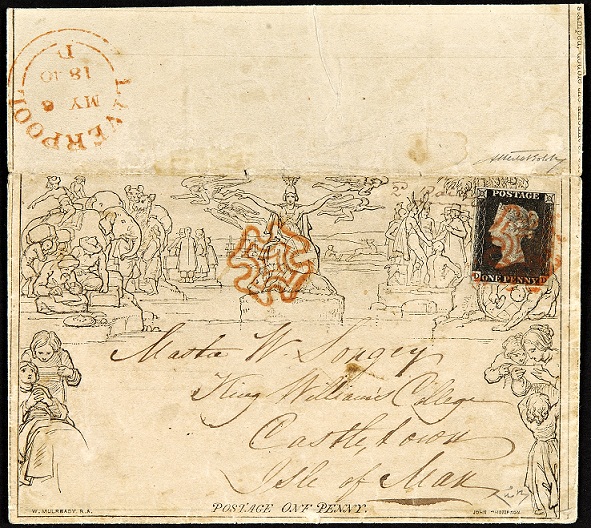 LIVERPOOL
MY 6
1840
D
POSTAGE
D ONE PENNY D
Master W
King William's College
Castletown
Isle of Man
POSTAGE ONE PENNY.
W. MULREADY. R.A.
JOHN THOMPSON